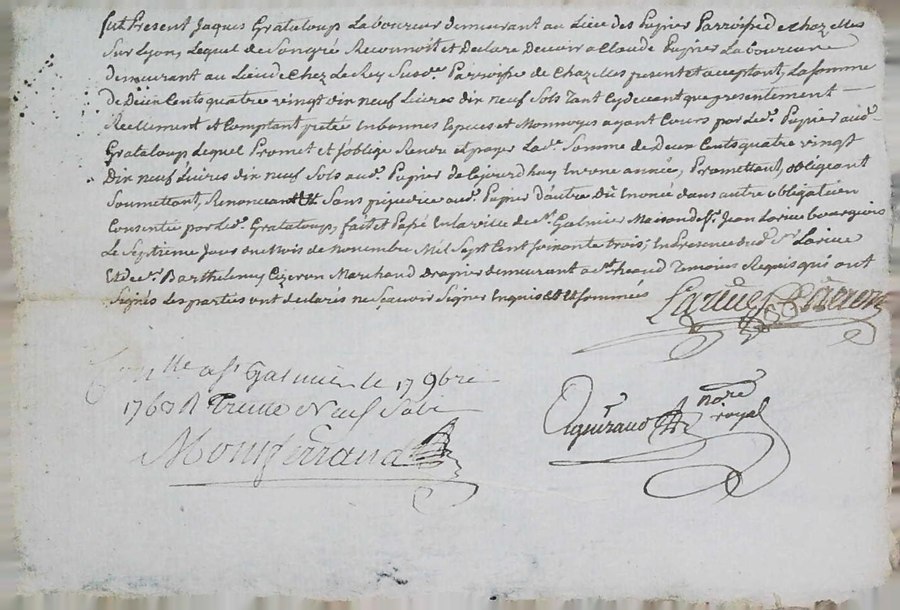 fut Present Jaques Grataloup Laboureur demeurant au Lieu des Pupier Parroisse de Chazelles
Sur Lyon, Lequel de Son gré Reconnoit et Declare Devoir a Claude Pupier Laboureur
demeurant au Lieu de Chez Le Rey Susde. Parroisse de Chazelles present et acceptant, La somme
de Deux Cents quatre vingt dix neuf Livres dix neuf Sols Tant Cy devant que presentement
Reellement et Comptant pretée En bonnes Especes et Monnoyes ayant Cours par Led. Pupier aud.
Grataloup Lequel Promet et s'oblige Rendre et payer Lade. Somme de deux Cents quatre vingt
Dix neuf Livres dix neuf Sols aud. Pupier de Cejourd'huy En une année, Promettant, obligeant
Soumettant, Renonceant Sans prejudice aud. Pupier D'autre Dû Enoncé dans autre obligation
Consentie par led. Grataloup, fait et Passé En la ville de St. Galmier Maison de Sr. Jean Larue Bourgeois
Le Septieme Jour du mois de novembre Mil Sept Cent soixante trois; En Presence dud. Sr Larue
Et de Sr. Barthelemy Cizeron Marchand Drapier demeurant a St. heand Temoins Requis qui ont
Signés Les parties ont declarés ne Scavoir Signer Enquis et Sommées
Larue Cizeron
Con.lle a St Galmier le 17 9bre
1763 R Treize Neuf Sols
Montferrand
Agniraud nore
royal